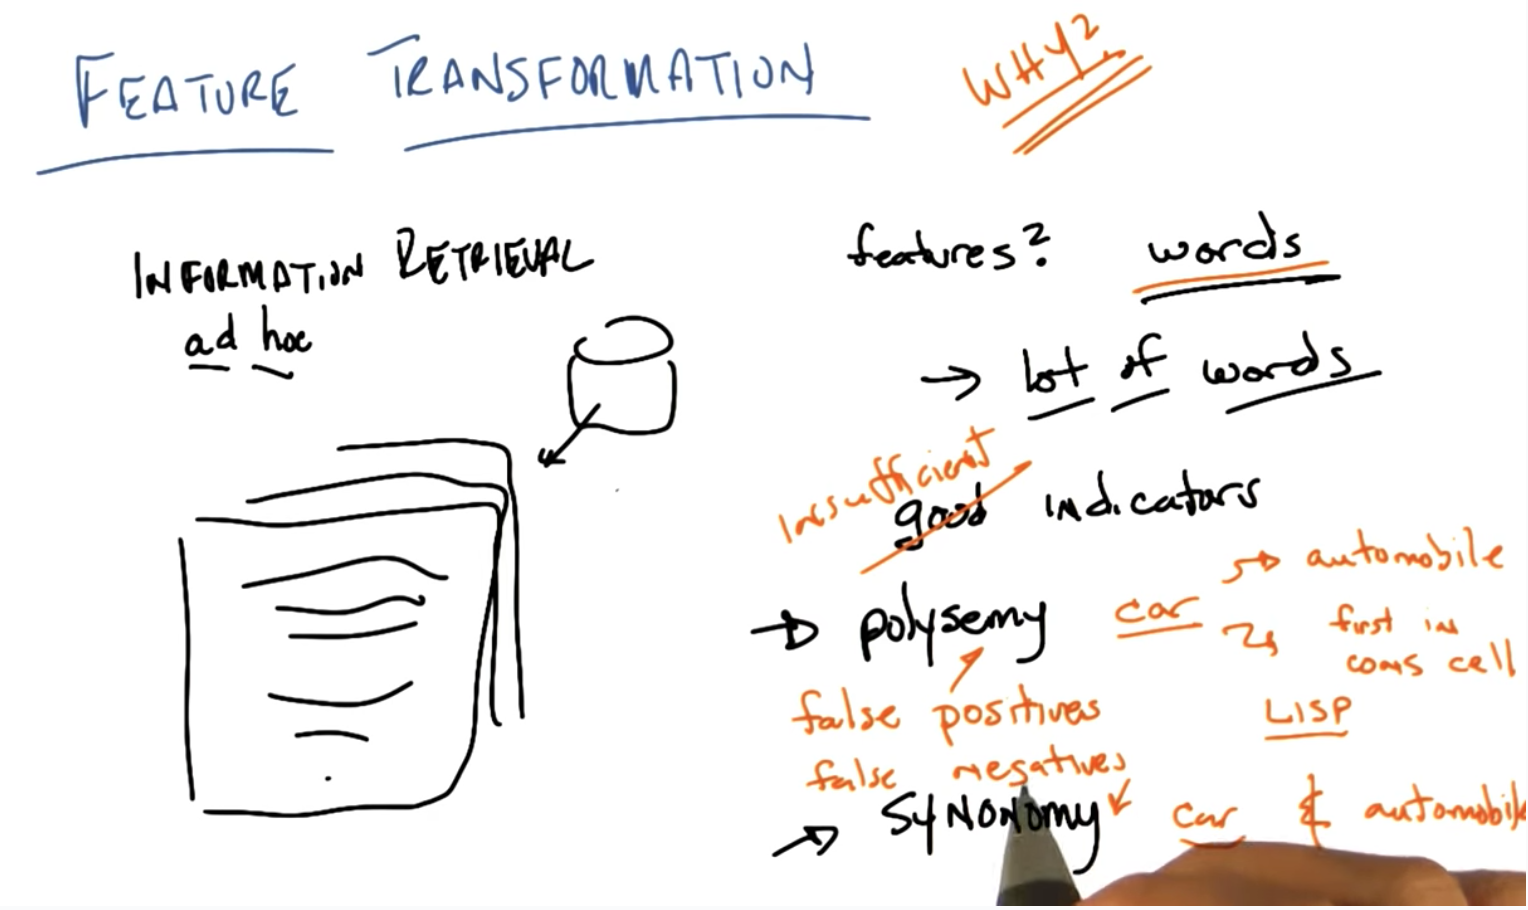 FEATURE TRANSFORMATION
WHY?
INFORMATION RETRIEVAL
ad hoc
features? words
→ lot of words
insufficient
good indicators
→ polysemy car → automobile
→ first in
cons cell
false positives
LISP
false negatives
→ SYNONOMY car & automobile